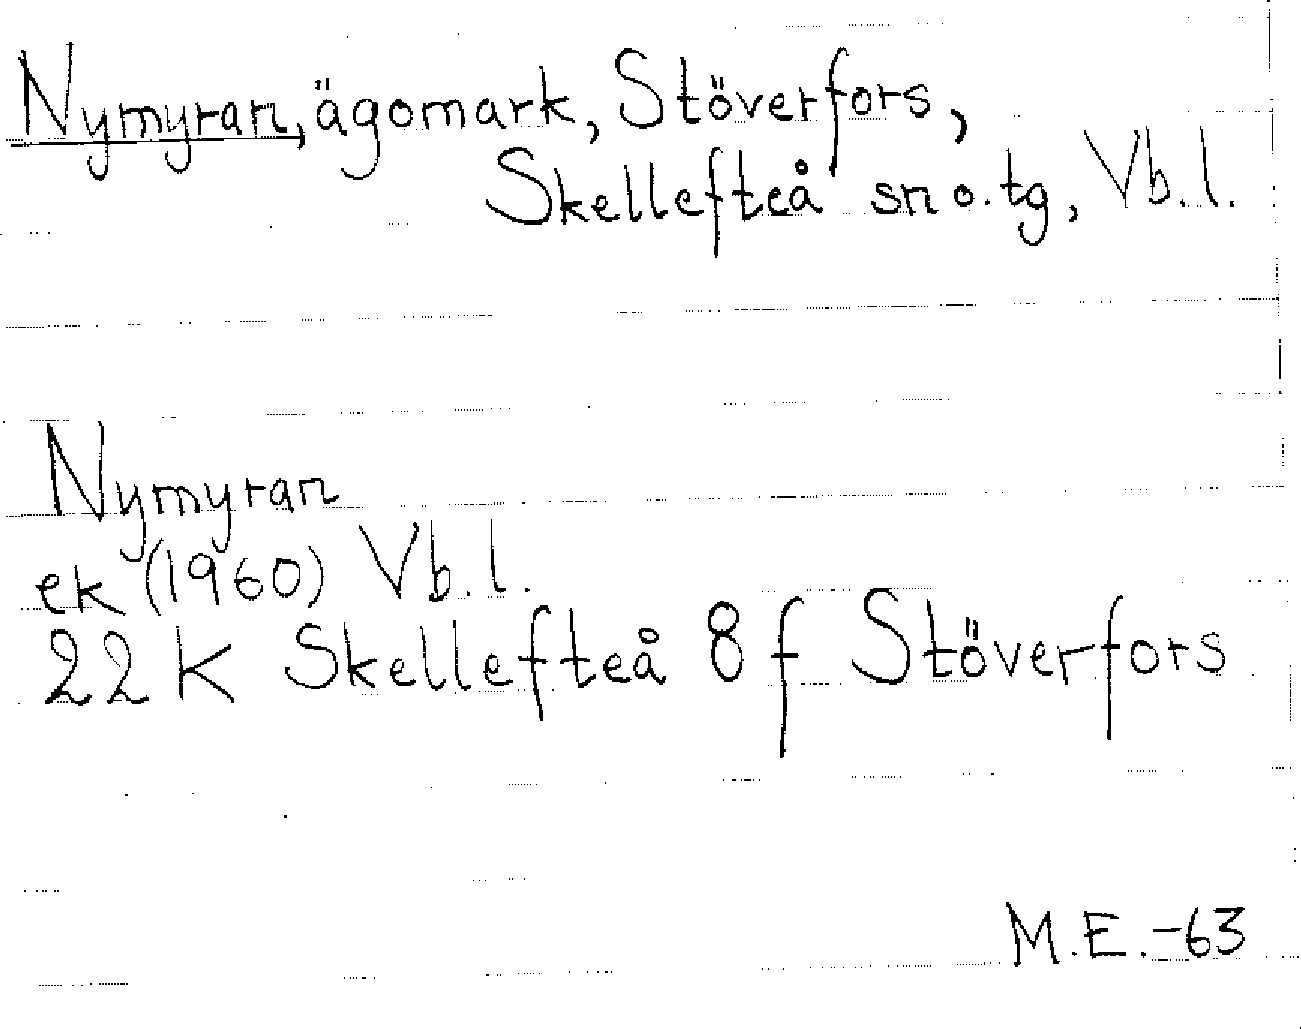 Nymyran, ägomark, Stöverfors,
Skellefteå sn o. tg, Vb. l.
Nymyran
ek (1960) Vb. l.
22 K Skellefteå 8 f Stöverfors
M.E.-63